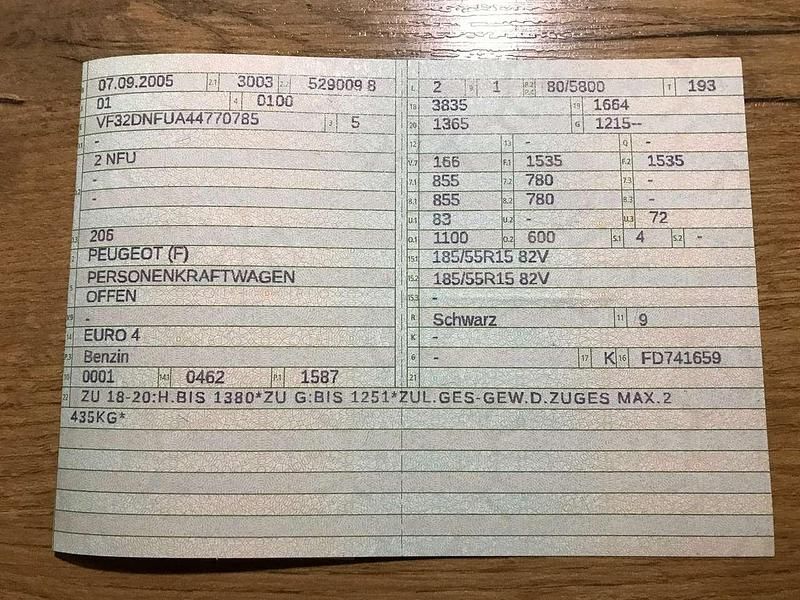 07.09.2005 2.1 3003 2.2 529009 8
01 4 0100
VF32DNFUA44770785 3 5
-
2 NFU
-
-
206
PEUGEOT (F)
PERSONENKRAFTWAGEN
OFFEN
-
EURO 4
Benzin
0001 14.1 0462 P.1 1587
L 2 9 1 P.2 P.4 80/5800 T 193
18 3835 19 1664
20 1365 G 1215--
12 13 - Q -
V.7 166 F.1 1535 F.2 1535
7.1 855 7.2 780 7.3 -
8.1 855 8.2 780 8.3 -
U.1 83 U.2 - U.3 72
O.1 1100 O.2 600 S.1 4 S.2 -
15.1 185/55R15 82V
15.2 185/55R15 82V
15.3 -
R Schwarz 11 9
K -
6 - 17 K 16 FD741659
21
22 ZU 18-20:H.BIS 1380*ZU G:BIS 1251*ZUL.GES-GEW.D.ZUGES MAX.2
435KG*